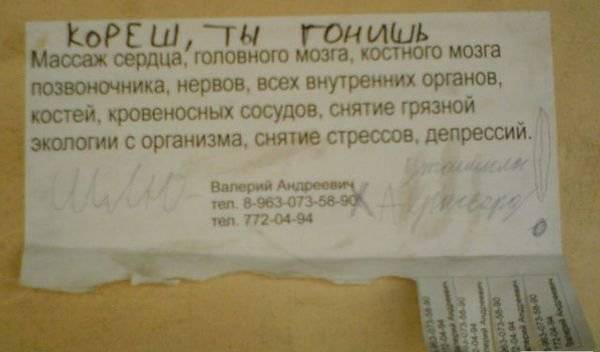 КОРЕШ, ТЫ ГОНИШЬ
Массаж сердца, головного мозга, костного мозга
позвоночника, нервов, всех внутренних органов,
костей, кровеносных сосудов, снятие грязной
экологии с организма, снятие стрессов, депрессий.
Валерий Андреевич
тел. 8-963-073-58-90
тел. 772-04-94
Валерий Андреевич
772-04-94
Валерий Андреевич
Валерий Андреевич